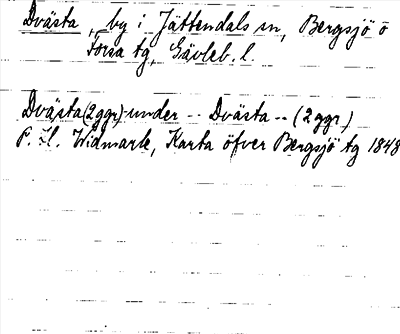 Dvästa, by i Jättendals sn, Bergsjö o
Forsa tg, Gävleb. l.
Dvästa (2 ggr) under -- Dvästa -- (2 ggr)
P. H. Widmark, Karta öfver Bergsjö tg 1848